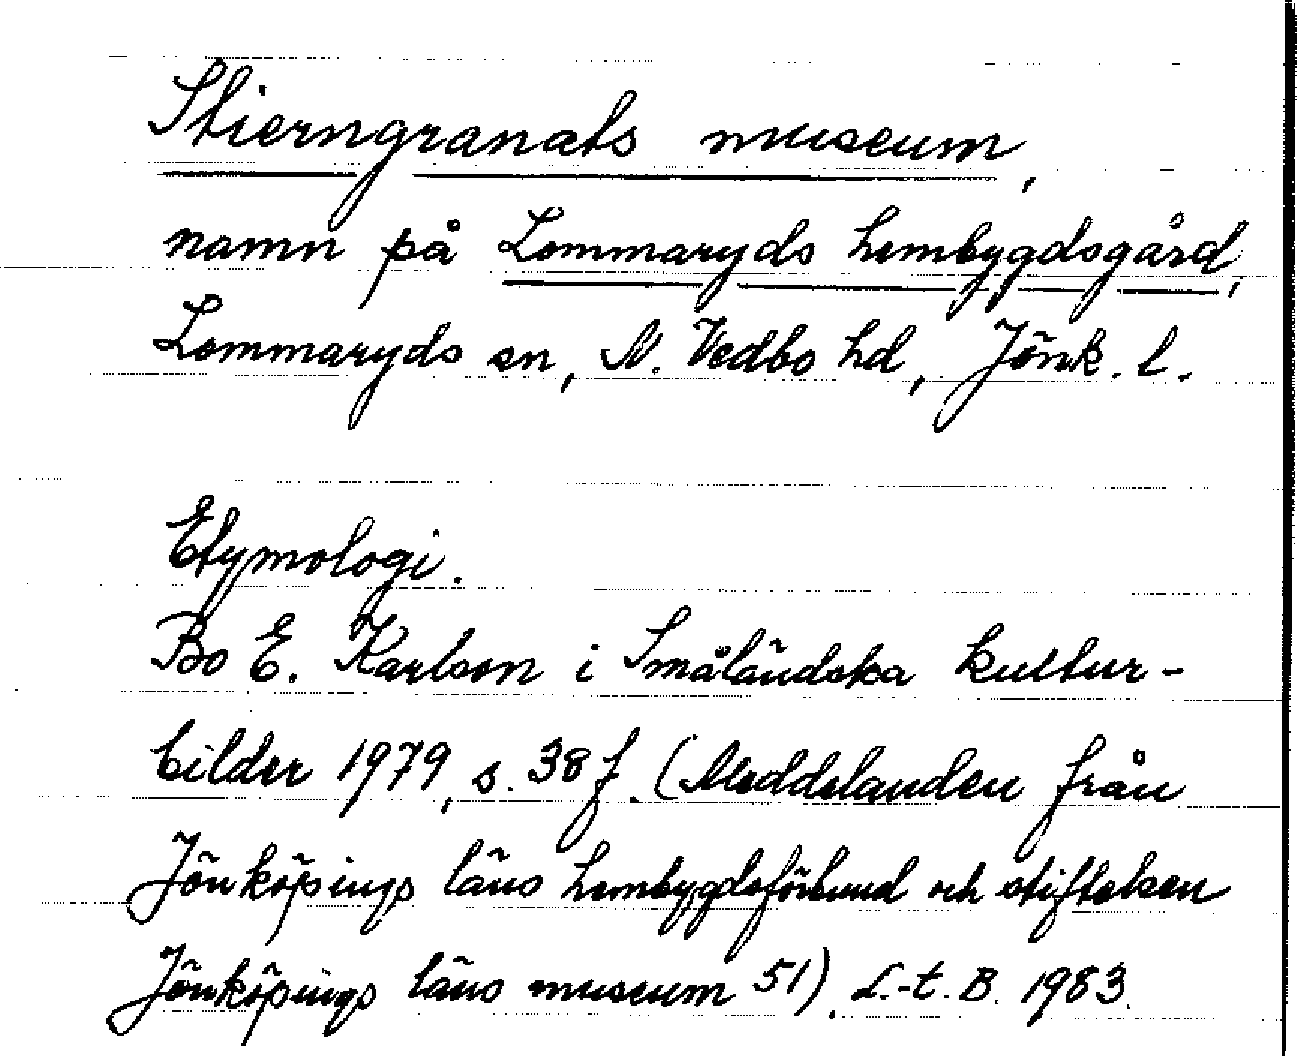 Stierngranats museum,
namn på Lommaryds hembygdsgård,
Lommaryds sn, N. Vedbo hd, Jönk. l.
Etymologi.
Bo E. Karlson i Småländska kultur-
bilder 1979, s. 38 f. (Meddelanden från
Jönköpings läns hembygdsförbund och stiftelsen
Jönköpings läns museum 51). L.-t. B. 1983.